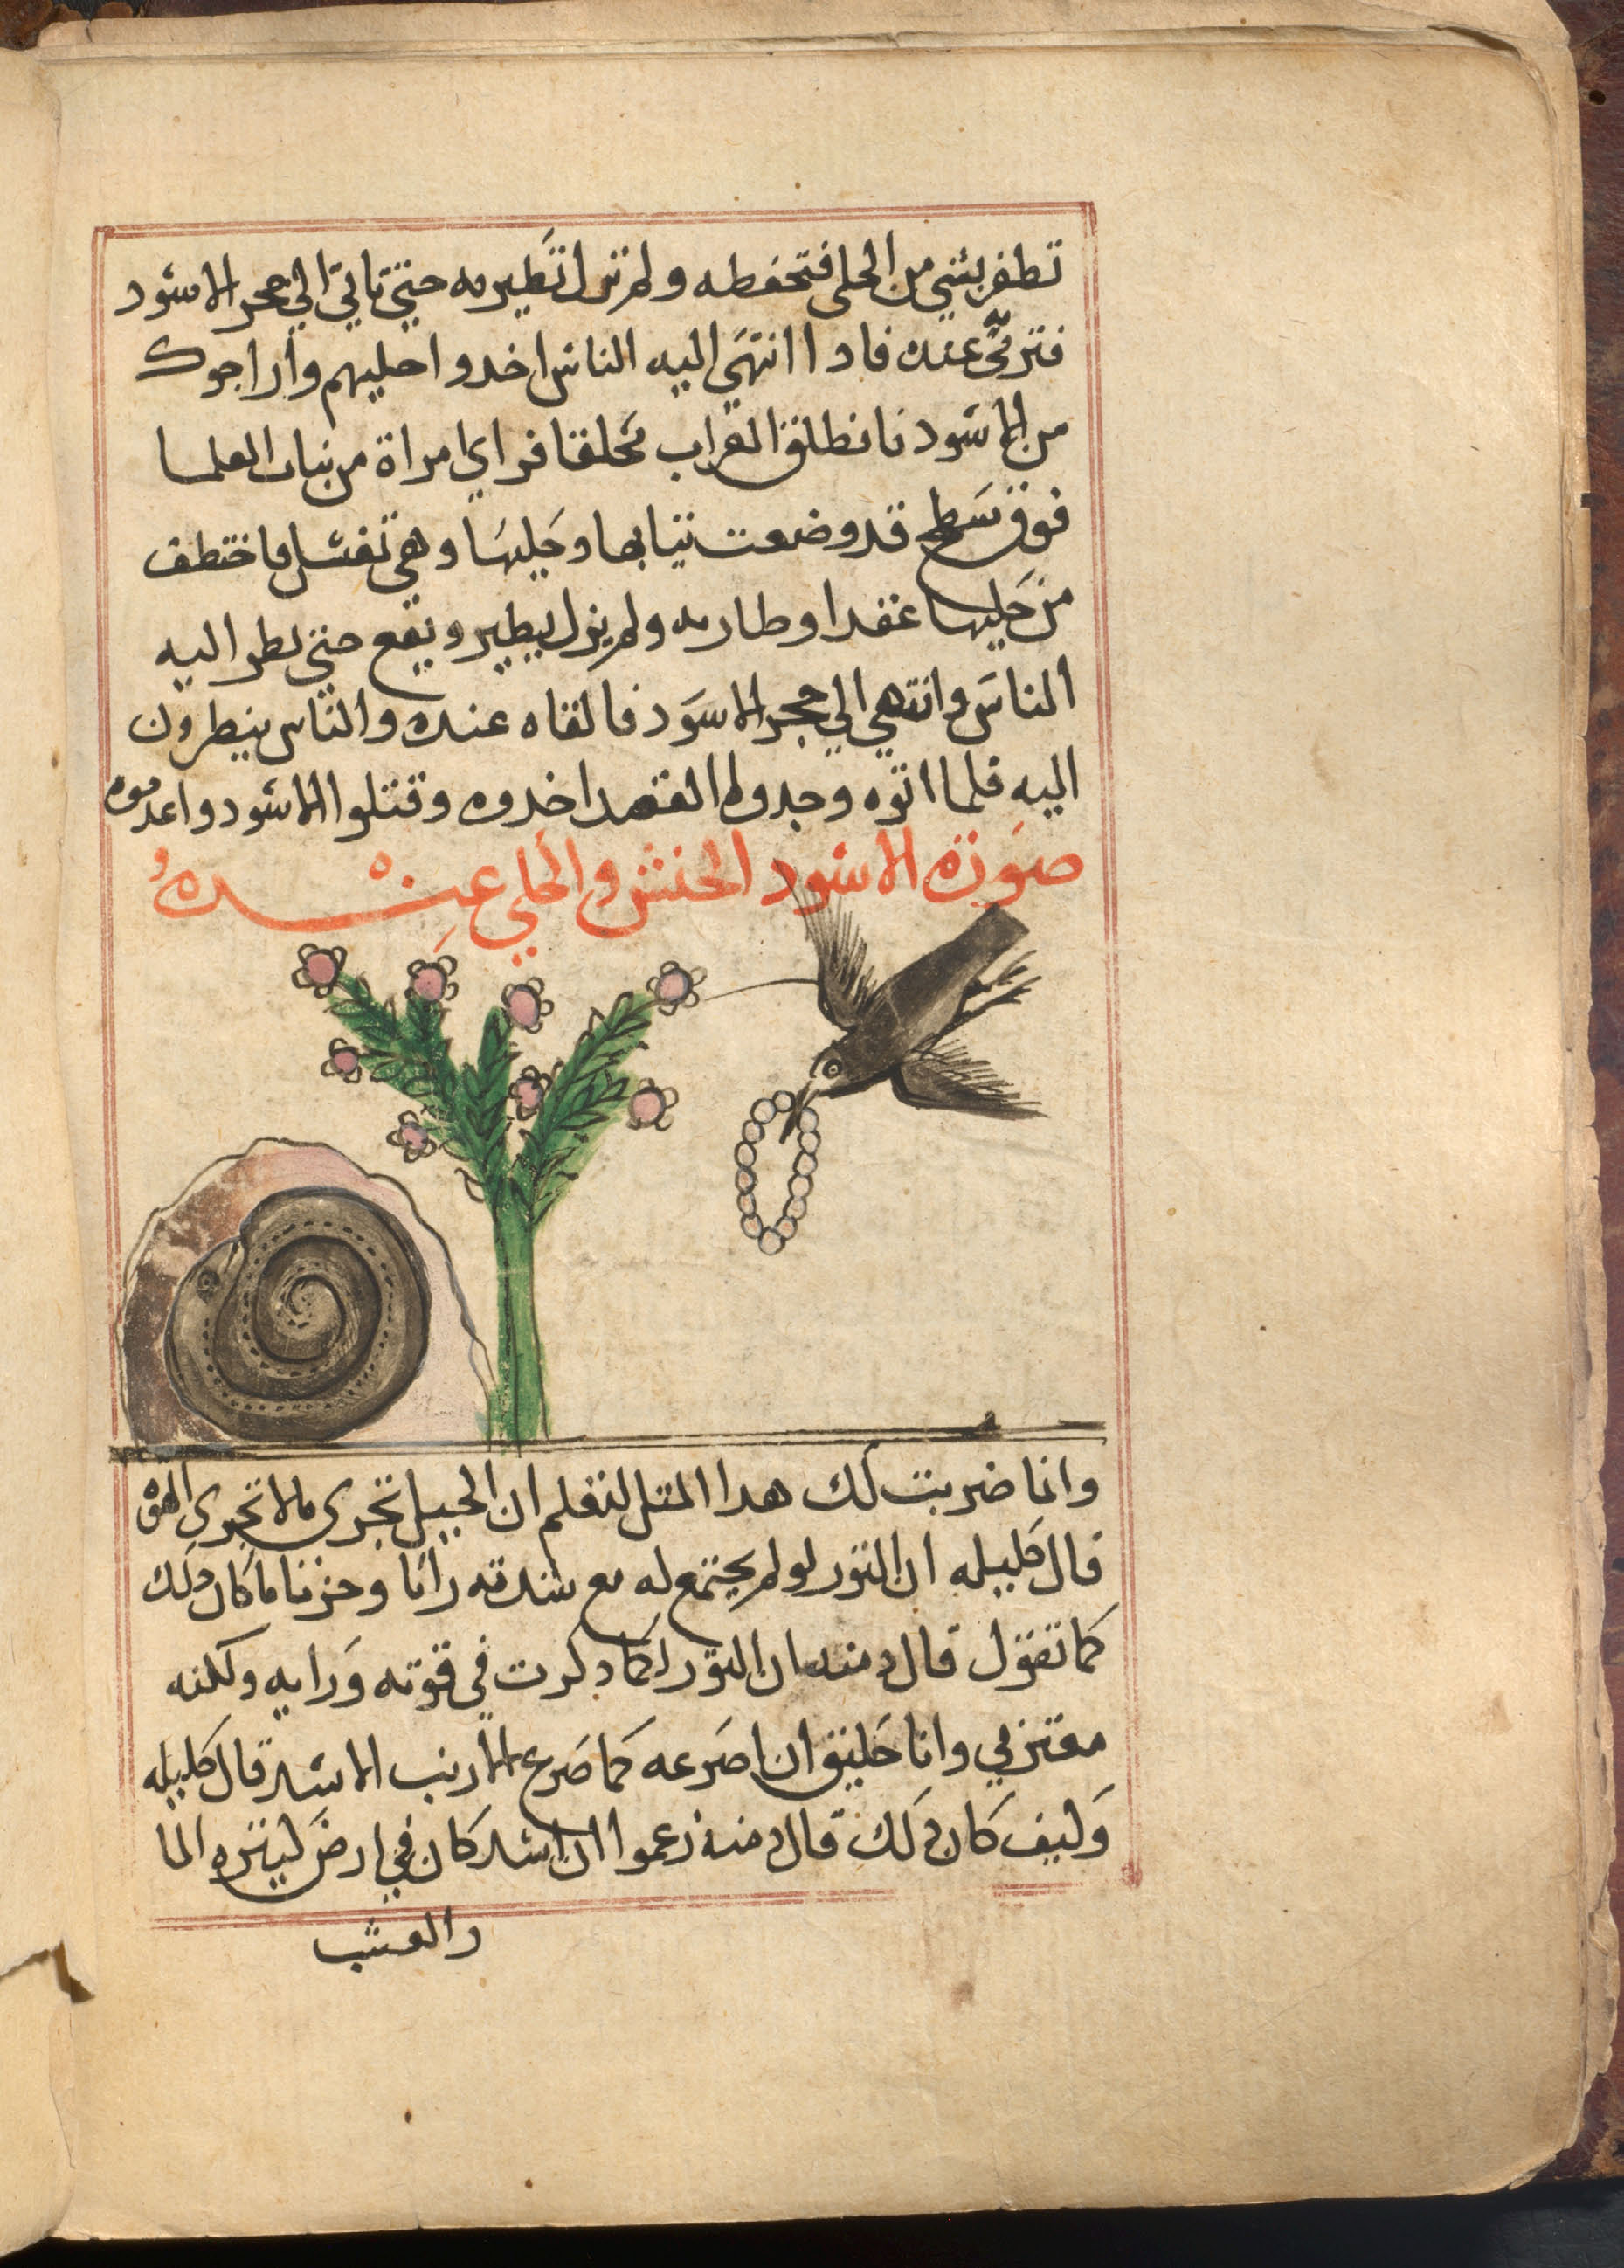 تظفر بشي من الحلي فتخطفه ولم تزل تطير به حتي تاتي الي حجر الاسود
فترمي به عنده فادا انتهي اليه الناس اخدوا حليهم واراحوك
من الاسود فانطلق الغراب محلقا فراي امراة من بنات العلما
فوق سطح قد وضعت ثيابها وحليها وهي تغتسل فاختطف
من حليها عقدا وطار به ولم يزل يطير ويقع حتي نظر اليه
الناس وانتهي الي حجر الاسود فالقاه عنده والناس ينظرون
اليه فلما اتوه وجدوا العقد اخدوه وقتلوا الاسود واعدموه
صورة الاسود الحنش والحلي عنده
وانما ضربت لك هدا المتل لتعلم ان الحيل تجري ما لا تجري القوه
قال كليله ان التور لو لم يجتمع له مع شدته رايا وحزما ما كان دلك
كما تقول قال دمنه ان التور لكما دكرت في قوته ورايه ولكنه
مغتر بي وانا خليق ان اصرعه كما صرع الارنب الاسد قال كليله
وكيف كان دلك قال دمنه زعموا ان اسد كان في ارض كتيره الما
والعشب